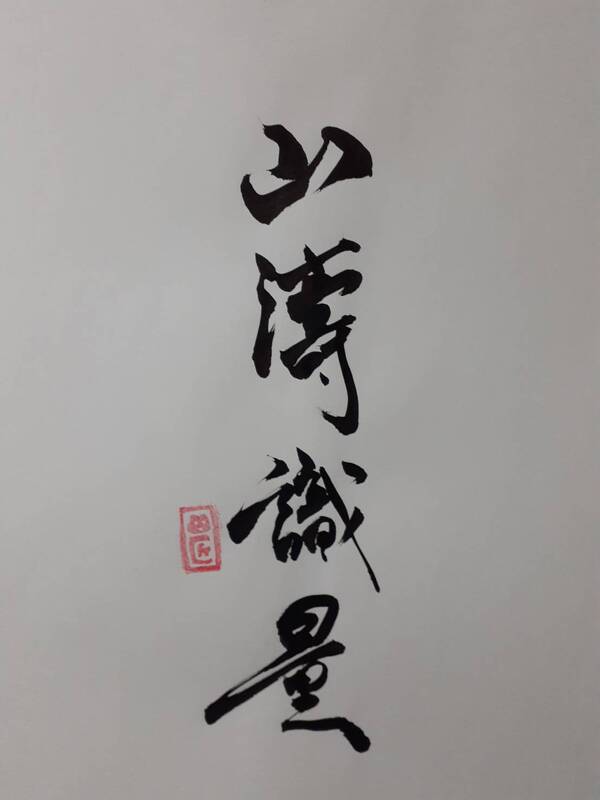 山濤識量